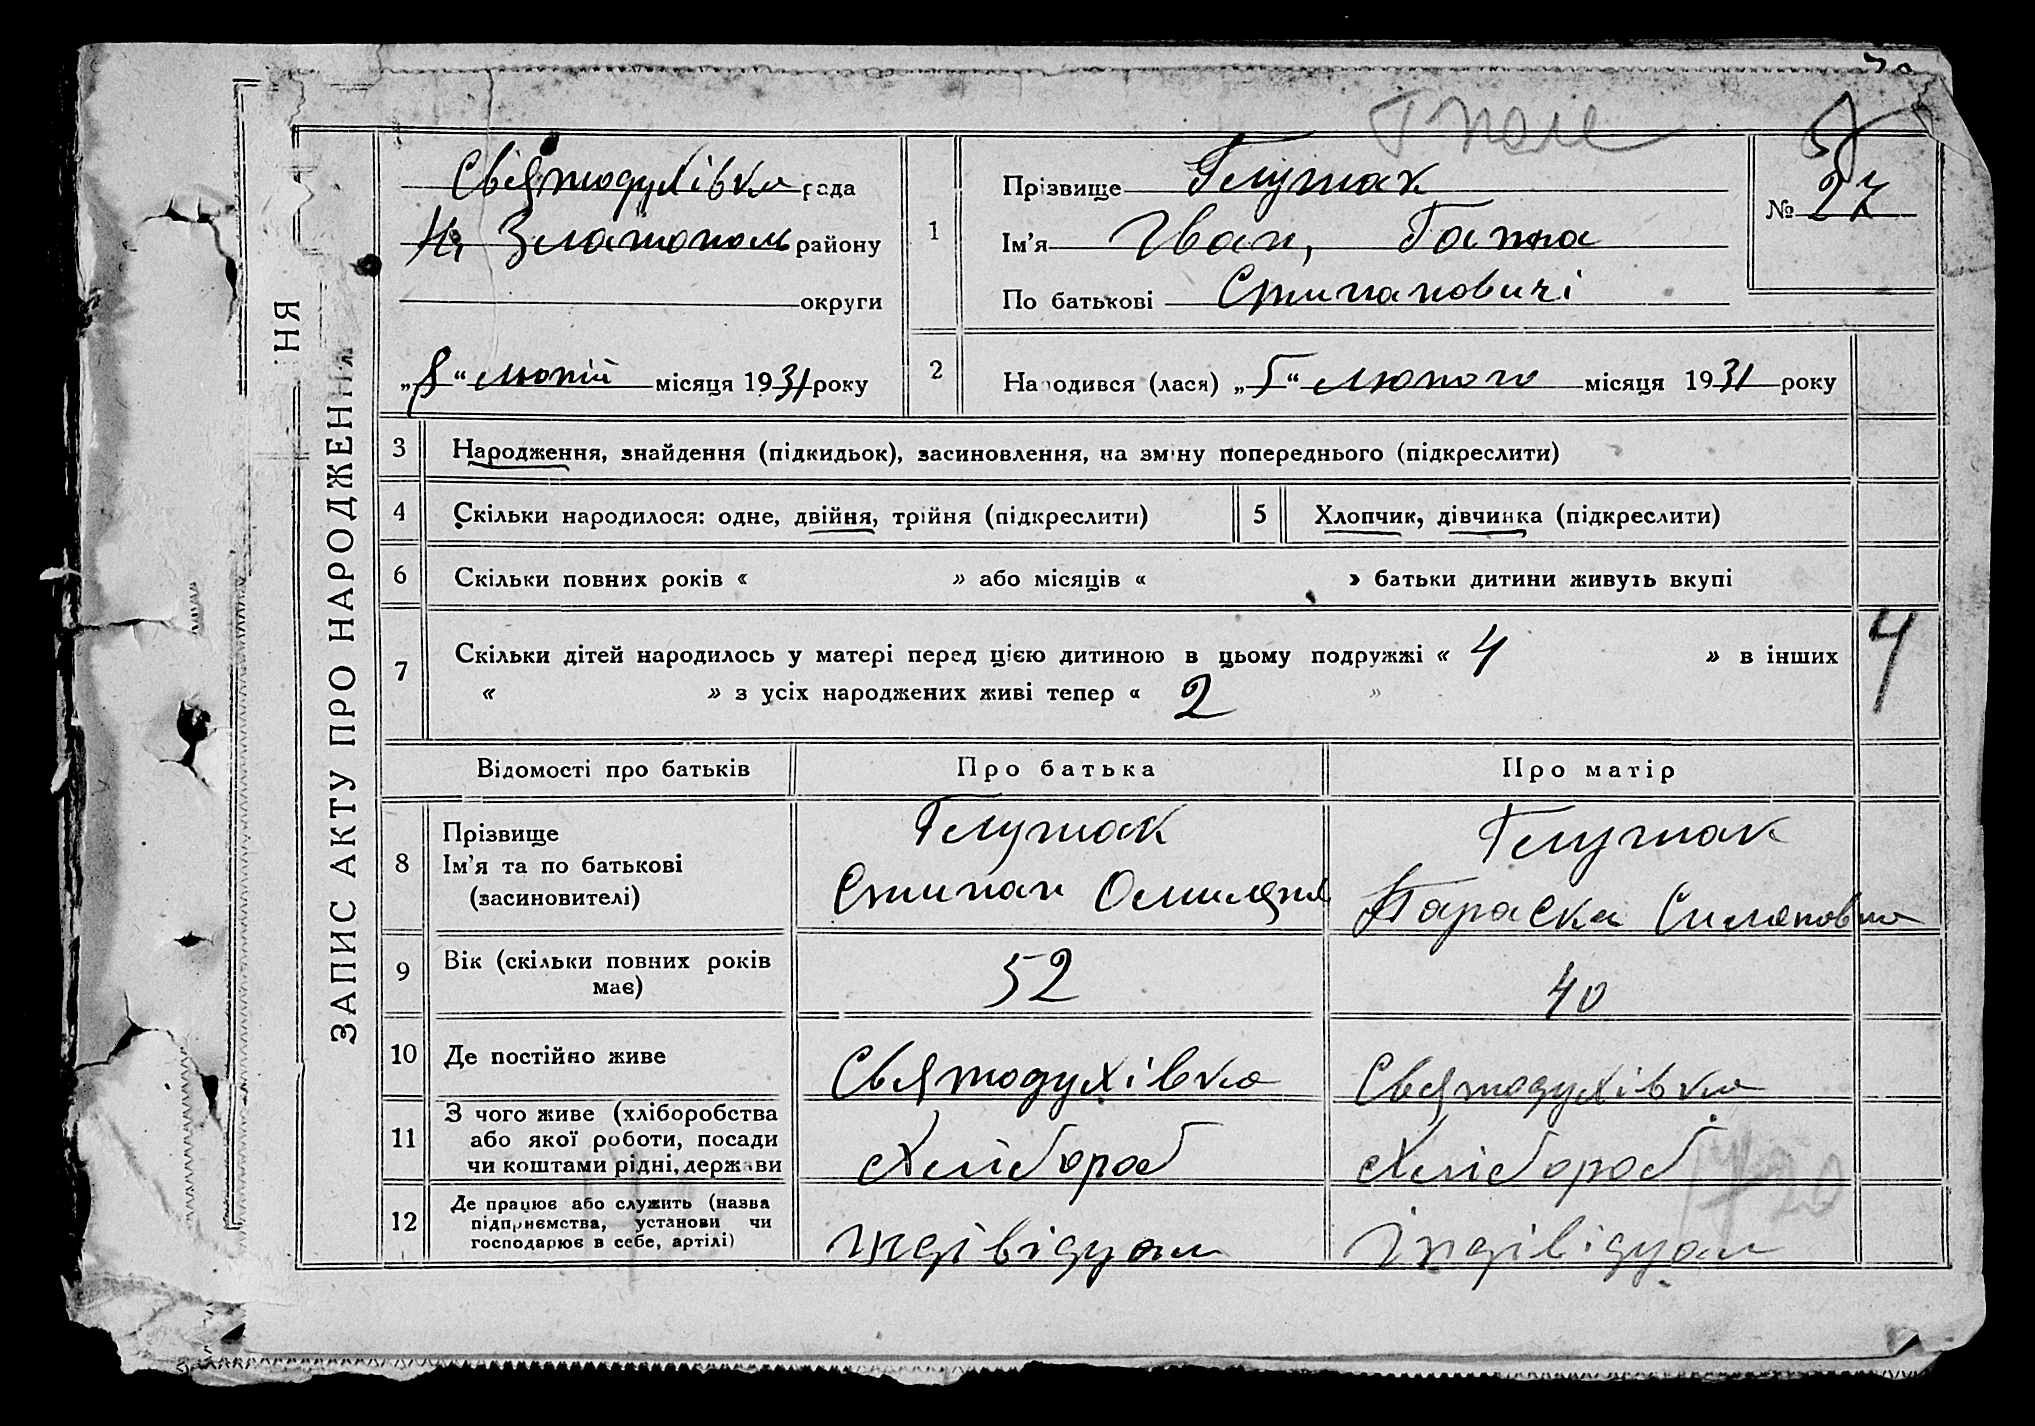 ЗАПИС АКТУ ПРО НАРОДЖЕННЯ
НЯ
Святодухівка рада
Н. Златополь району
округи
„8“ лютий місяця 1931 року
1
Прізвище Глушак
Ім'я Іван, Ганна
По батькові Степановичі
№ 27
2
Народився (лася) „5“ лютого місяця 1931 року
3 Народження, знайдення (підкидьок), засиновлення, на зміну попереднього (підкреслити)
4 Скільки народилося: одне, двійня, трійня (підкреслити)
5 Хлопчик, дівчинка (підкреслити)
6 Скільки повних років « » або місяців « » батьки дитини живуть вкупі
7 Скільки дітей народилось у матері перед цією дитиною в цьому подружжі « 4 » в інших
« » з усіх народжених живі тепер « 2 »
4
Відомості про батьків Про батька Про матір
8 Прізвище
Ім'я та по батькові
(засиновителі)
Глушак
Степан
Глушак
Параска
9 Вік (скільки повних років
має)
52
40
10 Де постійно живе
Святодухівка
Святодухівка
11 З чого живе (хліборобства
або якої роботи, посади
чи коштами рідні, держави
Хлібороб
Хлібороб
12 Де працює або служить (назва
підприємства, установи чи
господарює в себе, артілі)
індівідуал
індівідуал